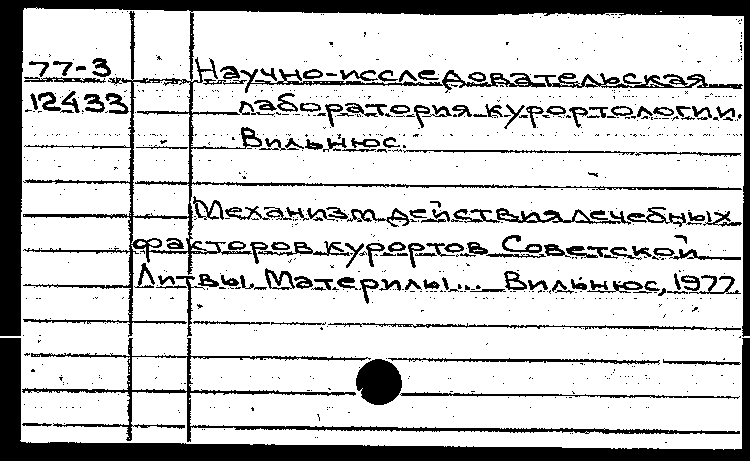 77-3
12433
Научно-исследовательская
лаборатория курортологии.
Вильнюс.
Механизм действия лечебных
факторов курортов Советской
Литвы. Материлы... Вильнюс, 1977.